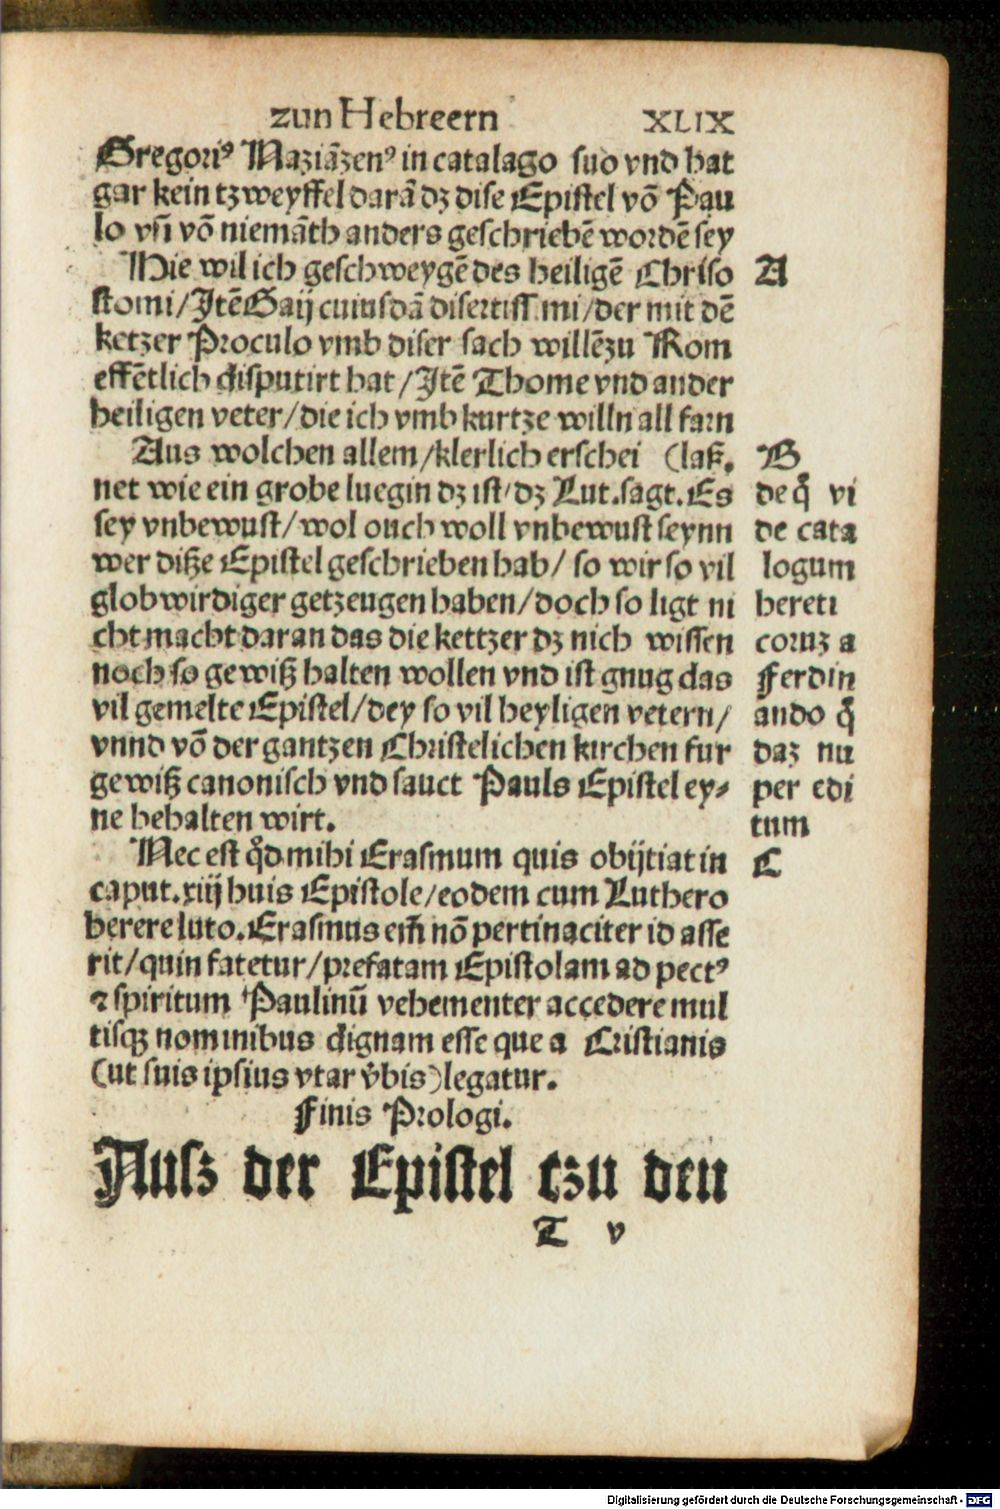 zun Hebreern XLIX
Gregoriꝰ Naziāzenꝰ in catalago suo vnd hat
gar kein tzweyffel darā dz dise Epistel vō Pau
lo vñ vō niemāth anders geschriebē wordē sey
Hie wil ich geschweygē des heiligē Chriso
stomi/Jtē Gaij cuiusdā disertiss mi/der mit dē
ketzer Proculo vmb diser sach willē zu Rom
effētlich disputirt hat/Jtē Thome vnd ander
heiligen veter/die ich vmb kurtze willn all farn
Aus wolchen allem/klerlich erschei (laß.
net wie ein grobe luegin dz ist/dz Lut.sagt.Es
sey vnbewust/wol ouch woll vnbewust seynn
wer diße Epistel geschrieben hab/ so wir so vil
globwirdiger getzeugen haben/doch so ligt ni
cht macht daran das die kettzer dz nich wissen
noch so gewiß halten wollen vnd ist gnug das
vil gemelte Epistel/dey so vil heyligen vetern/
vnnd vō der gantzen Christelichen kirchen fur
gewiß canonisch vnd sauct Pauls Epistel ey⸗
ne behalten wirt.
Nec est qd̄ mihi Erasmum quis obijtiat in
caput.xiij huis Epistole/eodem cum Luthero
herere luto.Erasmus em̄ nō pertinaciter id asse
rit/quin fatetur/prefatam Epistolam ad pectꝰ
⁊ spiritum Paulinū vehementer accedere mul
tisqꝫ nominibus dignam esse que a Cristianis
(ut suis ipsius vtar v̄bis)legatur.
Finis Prologi.
Ausz der Epistel tzu den
T v
A
B
de q̄ vi
de cata
logum
hereti
coruz a
ferdin
ando q̄
daz nu
per edi
tum
C
Digitalisierung gefördert durch die Deutsche Forschungsgemeinschaft - DFG